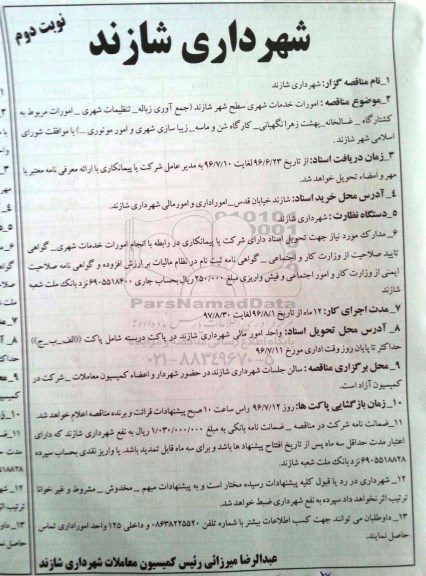 نوبت دوم
شهرداری شازند
۱_نام مناقصه گزار: شهرداری شازند
۲_موضوع مناقصه : امورات خدمات شهری سطح شهر شازند (جمع آوری زباله_ تنظیفات شهری _ امورات مربوط به
کشتارگاه _ غسالخانه_بهشت زهرا نگهبانی_ کارگاه شن و ماسه_ زیبا سازی شهری و امور موتوری ...) با موافقت شورای
اسلامی شهر شازند .
۳_زمان دریافت اسناد: از تاریخ ۹۶/۶/۲۳ لغایت ۹۶/۷/۱۰ به مدیر عامل شرکت یا پیمانکاری با ارائه معرفی نامه معتبر با
مهر و امضاء تحویل خواهد شد.
۴_آدرس محل خرید اسناد: شازند خیابان قدس_ امور اداری و امور مالی شهرداری شازند.
۵_دستگاه نظارت : شهرداری شازند
۶_مدارک مورد نیاز جهت تحویل اسناد دارای شرکت یا پیمانکاری در رابطه با انجام امورات خدمات شهری_ گواهی
تایید صلاحیت از وزارت کار و اجتماعی _ گواهی نامه ثبت نام در نظام مالیات بر ارزش افزوده و گواهی نامه صلاحیت
ایمنی از وزارت کار و امور اجتماعی و فیش واریزی مبلغ ۲۵۰/۰۰۰ ریال بحساب جاری ۶۹۰۵۵۱۸۴۰۰ نزد بانک ملت شعبه
شازند
۷_مدت اجرای کار: ۱۲ ماه از تاریخ ۹۶/۸/۱ لغایت ۹۷/۸/۳۰
۸_آدرس محل تحویل اسناد: واحد امور مالی شهرداری شازند در پاکت دربسته شامل پاکت ((الف_ب_ج))
حداکثر تا پایان روز وقت اداری مورخ ۹۶/۷/۱۱
۹_محل برگزاری مناقصه : سالن جلسات شهرداری شازند در حضور شهردار و اعضاء کمیسیون معاملات_شرکت در
کمیسیون آزاد است.
۱۰_زمان بازگشایی پاکت ها: روز ۹۶/۷/۱۲ راس ساعت ۱۰ صبح پیشنهادات قرائت و برنده مناقصه اعلام خواهد شد.
۱۱_ضمانت نامه شرکت در مناقصه _ ضمانت نامه بانکی به مبلغ ۱/۰۳۰/۰۰۰/۰۰۰ ریال به نفع شهرداری شازند که دارای
اعتبار مدت حداقل سه ماه پس از تاریخ افتتاح پیشنهاد ها باشد و برای سه ماه قابل تمدید باشد. یا واریز نقدی بحساب سپرده
۶۹۰۵۵۱۸۸۲۸ نزد بانک ملت شعبه شازند.
۱۲_شهرداری در رد یا قبول کلیه پیشنهادات رسیده مختار است و به پیشنهادات مبهم _ مخدوش _ مشروط و غیر خوانا
ترتیب اثر نخواهد داد سپرده به نفع شهرداری ضبط خواهد شد.
۱۳_داوطلبان می توانند جهت کسب اطلاعات بیشتر با شماره تلفن ۰۸۶۳۸۲۲۵۵۲۰ و داخلی ۱۲۵ واحد امور اداری تماس
حاصل نمایند.
عبدالرضا میرزائی رئیس کمیسیون معاملات شهرداری شازند
ParsNamadData
۰۲۱-۸۸۳۴۹۶۷۰-۵